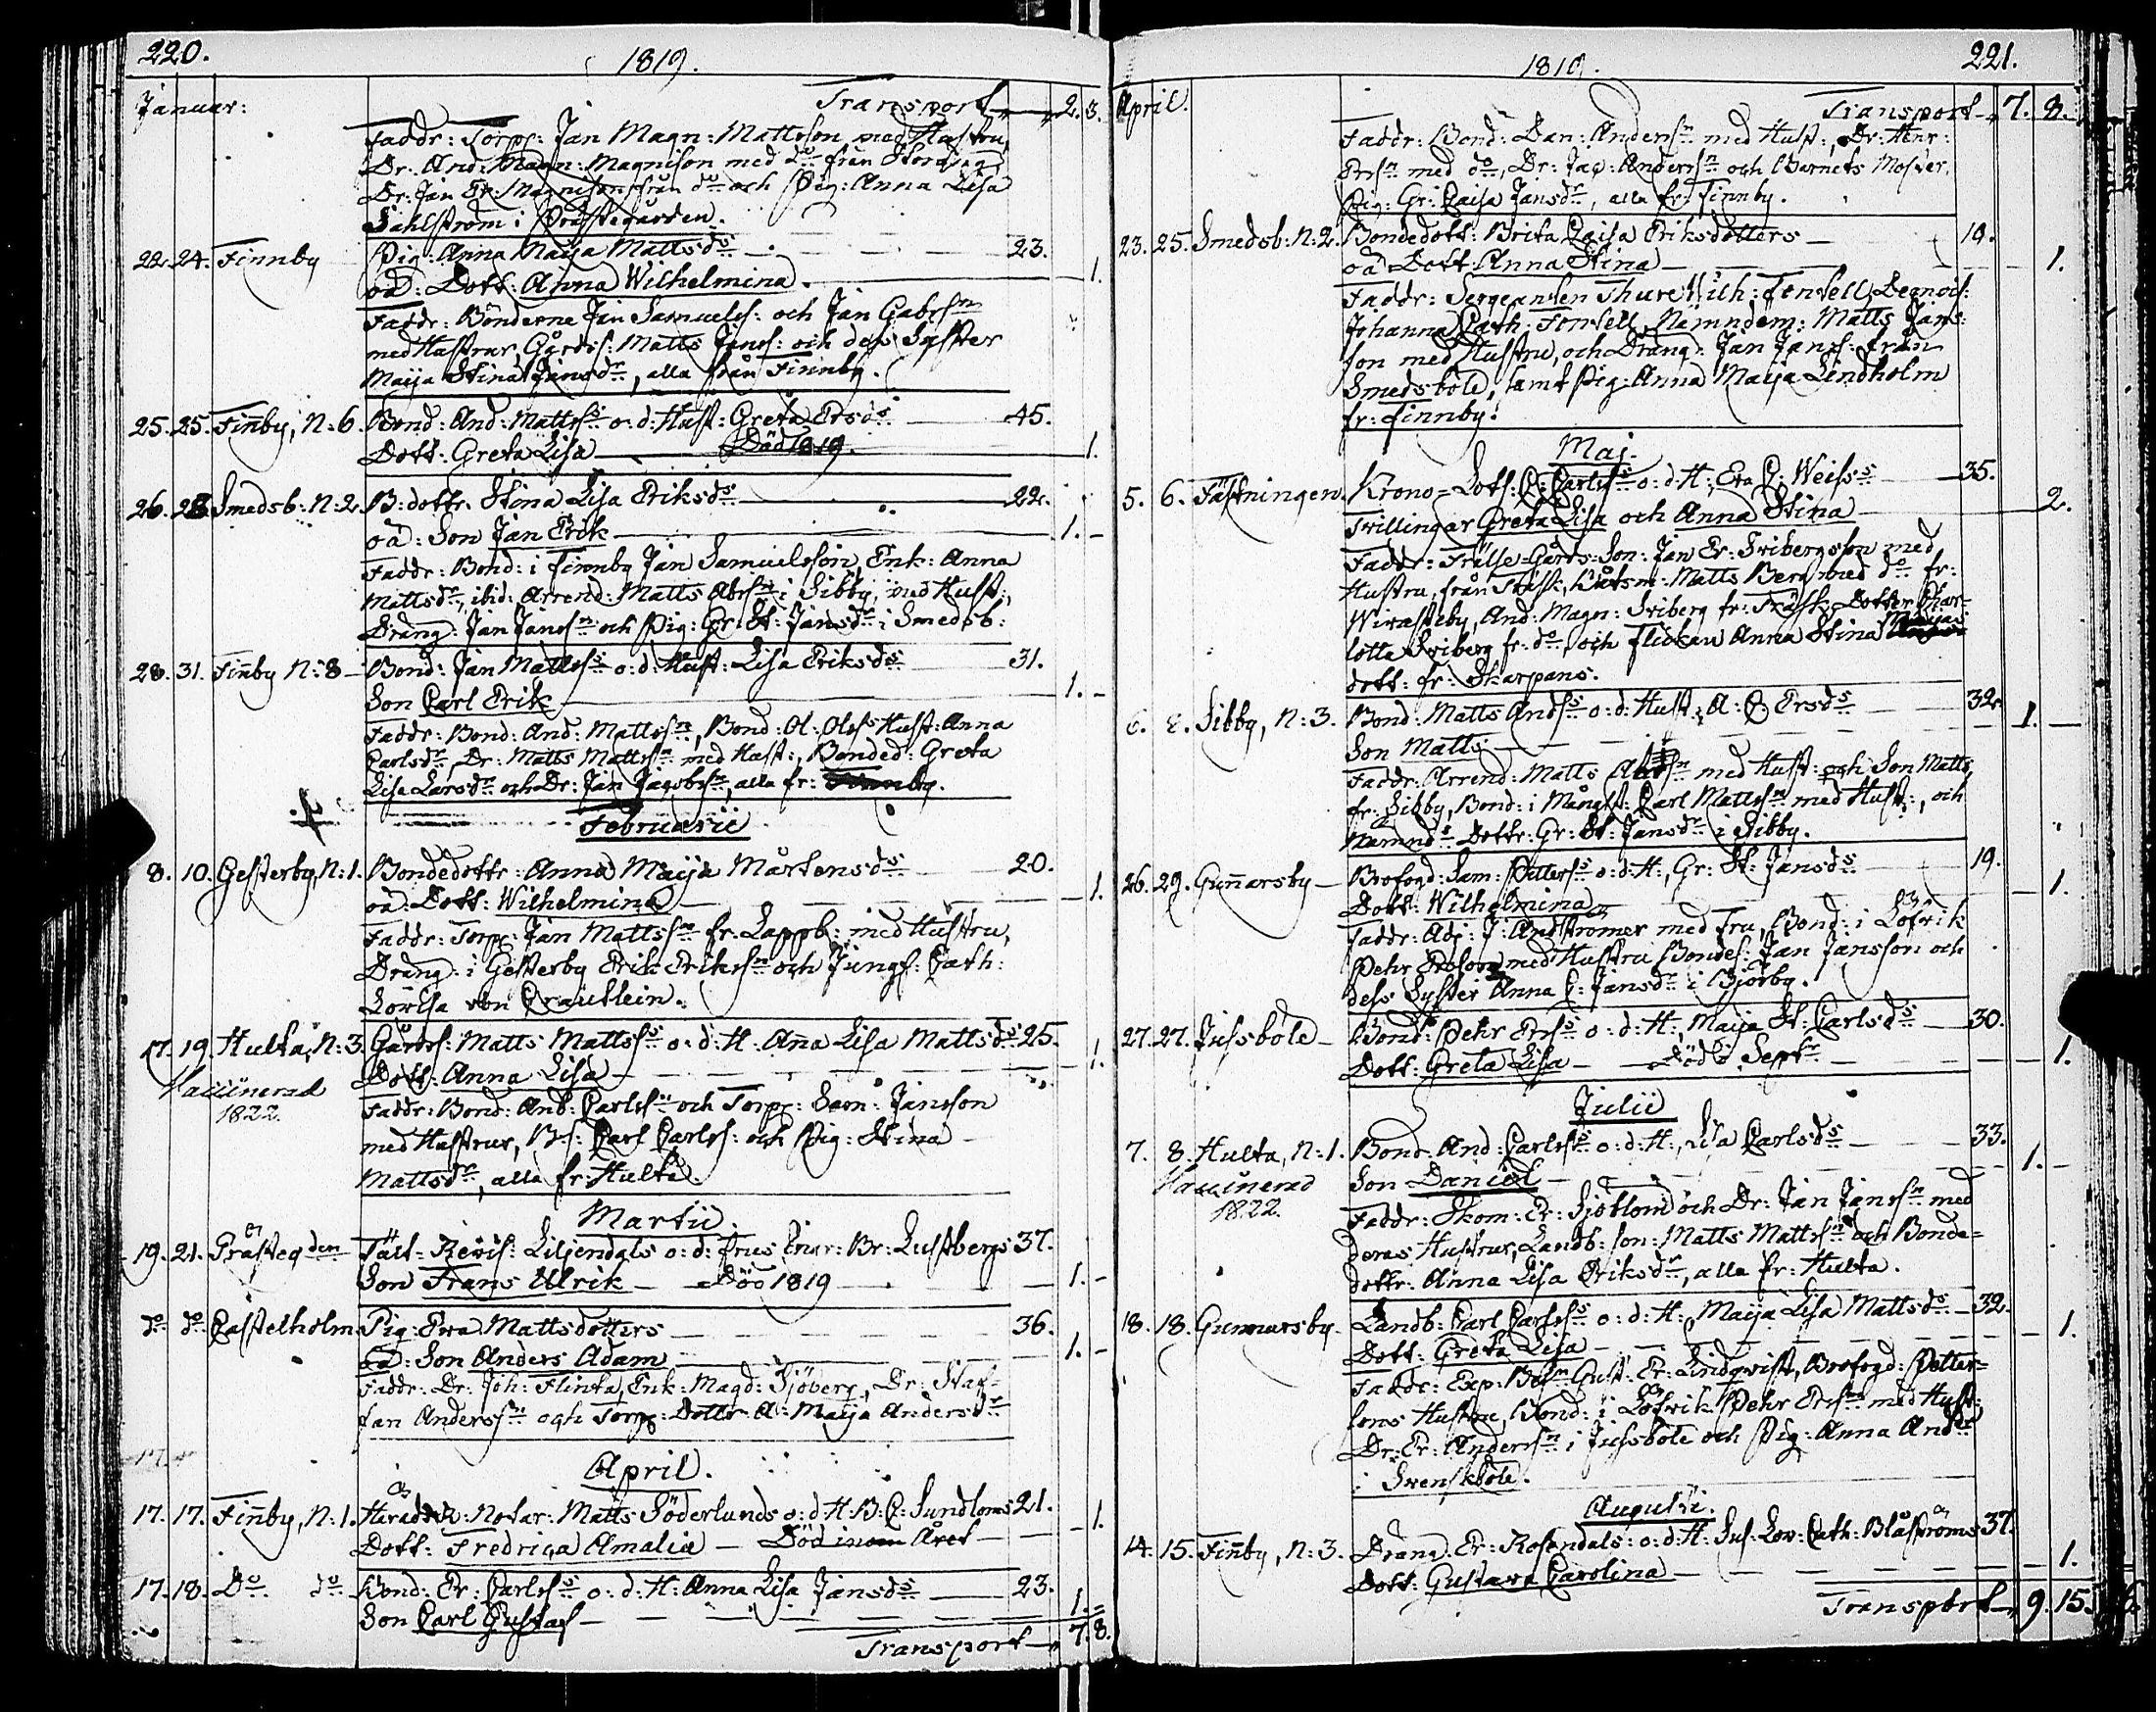 220.
1819.
Januar:
Transport 2. 3.
Faddr: Torp: Jan Magn: Mattsson med Hustru,
Dr: And: Magn: Magnison med do från
Dr: Jan Er: Magnison från do och Pig: Anna Lisa
Dahlström i Prästegården.
22. 24. Finnby Pig: Anna Maija Mattsds 23.
oä: Dott: Anna Wilhelmina 1.
Faddr: Bönderne Jan Samuels: och Jan Gabrsn
med Hustrur, Gårds: Matts Jans: och dess Syster
Maija Stina Jansdr, alla från Finnby.
25. 25. Finby, N:6. Bond: And: Mattss o: d: Hust: Greta Ersds 45.
Dott: Greta Lisa Död 1819. 1.
26. 28. Smedsb: N:2. B: dottr. Stina Lisa Eriksds 22.
oä: Son Jan Erik 1. -
Faddr: Bond: i Finnby Jan Samuelsson, Enk: Anna
Mattsdr, ibid: Arrend: Matts Abrsn i Sibby, med Hust:,
Dräng: Jan Jansn och Pig: Gr: St: Jansdr i Smedsb:
28. 31. Finby N:8 Bond: Jan Mattss o: d: Hust: Lisa Eriksds 31.
Son Carl Erik 1. -
Faddr: Bond: And: Mattssn, Bond: Ol: Olss Hust: Anna
Carlsdr, Dr: Matts Mattssn med Hust:, Bonded: Greta
Lisa Larsdr och Dr: Jan Jacobssn, alla fr: Finnby.
Februarii
8. 10. Gesterby, N:1. Bondedottr: Anna Maija Mårtensds 20.
oä: Dott: Wilhelmina 1.
Faddr: Torp: Jan Mattssn fr: Lappb: med Hustru,
Dräng: i Gesterby Erik Erikssn och Jungf: Cath:
Lovisa von
17. 19. Hulta, N:3. Gårds: Matts Mattss o: d: H: Anna Lisa Mattsds 25.
Dott: Anna Lisa 1.
Vaccinerad
1822.
Faddr: Bond: And: Carlssn och Torp: Sam: Jansson
med Hustrur, B:s: Carl Carls: och Pig: Stina
Mattsdr, alla fr: Hulta.
Martii.
19. 21. Prästegden Fält-Revis: Liljendals o: d: frus Br: Lustbergs 37.
Son Frans Ulrik Död 1819 1. -
do do Castelholm Pig: Ewa Mattsdotters 36.
oä: Son Anders Adam 1. -
Faddr: Dr: Joh: Flinta, Enk: Magd: Sjöberg, Dr: Staf-
fan Anderssn och Torp: Dottr A: Maija Andersdr
April.
17. 17. Finby, N:1. Härads R: Notar: Matts Söderlunds o: d: H: B: C: Sundloms 21.
Dott: Fredrica Amalia - Död inom Året 1.
17. 18. Do do Bond: Er: Carlss o: d: H: Anna Lisa Jansds 23.
Son Carl Gustaf 1. -
Transport 7. 8.
1819.
221.
April.
Transport 7. 8.
Faddr: Bond: Dan: Anderssn med Hust:, Dr: Henr:
Erssn med do, Dr: Jac: Anderssn och Barnets Moster,
Pig: Gr: Caisa Jansdr, alla fr: Finnby.
23. 25. Smedsb: N:2. Bondedott: Brita Caisa Eriksdotters 19.
oä Dott: Anna Stina 1.
Faddr: Sergeanten Thure Wilh: Fontell, Demois:
Johanna Cath: Fontell, Nämndem: Matts Jans-
son med Hustru, och Dräng: Jan Jans: från
Smedsböle, samt Pig: Anna Maija Lindholm
fr: Finnby.
Maj.
5. 6. Fästningen. Krono-Lots: C: Carlss o: d: H:, Eva C: Weiss 35.
Tvillingar Greta Lisa och Anna Stina 2.
Faddr: Frälse-Gårds-Son: Jan Er: Fribergsson med
Hustru, från Träsk, Båtsm: Matts Berg med do fr:
Wivasteby, And: Magn: Friberg fr: Träsk, Dotter Char-
lotta Friberg fr: do och Flickan Anna Stina
dott: fr: Skarpans.
6. 8. Sibby, N:3. Bond: Matts Andss o: d: Hust: A: C: Ersds 32.
Son Matts 1. -
Faddr: Arrend: Matts Abrsn med Hust: och Son Matts
fr: Sibby, Bond: i Mångst: Carl Mattssn med Hust:, och
Nämnds Dottr: Gr: St: Jansdr i Sibby.
26. 29. Gunnarsby Brofogd: Sam: Petterss o: d: H:, Gr: St: Jansds 19.
Dott: Wilhelmina 1.
Faddr: Adj: J: Andströmer med Fru, Bond: i Löfvik
Pehr Ersson med Hustru Bondes: Jan Jansson och
dess Syster Anna C: Jansdr i Björby.
27. 27. Jussböle Bond: Pehr Erss o: d: H:, Maija St: Carlsds 30.
Dott: Greta Lisa Död i Septr 1.
Julii
7. 8. Hulta, N:1. Bond: And: Carlss o: d: H:, Lisa Carlsds 33.
Son Daniel 1. -
Vaccinerad
1822.
Faddr: Skom: Er: Sjöblom och Dr: Jan Janssn med
deras Hustrur, Landb: son: Matts Mattssn och Bonde-
dottr: Anna Lisa Eriksdr, alla fr: Hulta.
18. 18. Gunnarsby. Landb: Carl Carlss o: d: H:, Maija Lisa Mattsds 32.
Dott: Greta Lisa 1.
Faddr: Exp: Gust: Er: Lindqvist, Brofogd: Petter-
sons Hustru, Bond: i Löfvik Pehr Erssn med Hust:,
Dr: Er: Anderssn i Jussböle och Pig: Anna Andsdr
i Svensböle.
Augusti.
14. 15. Finby, N:3. Dräng: Er: Rosendals: o: d: H: Sus: Lov: Cath: Blåströms 37.
Dott: Gustava Carolina 1.
Transport 9. 15.